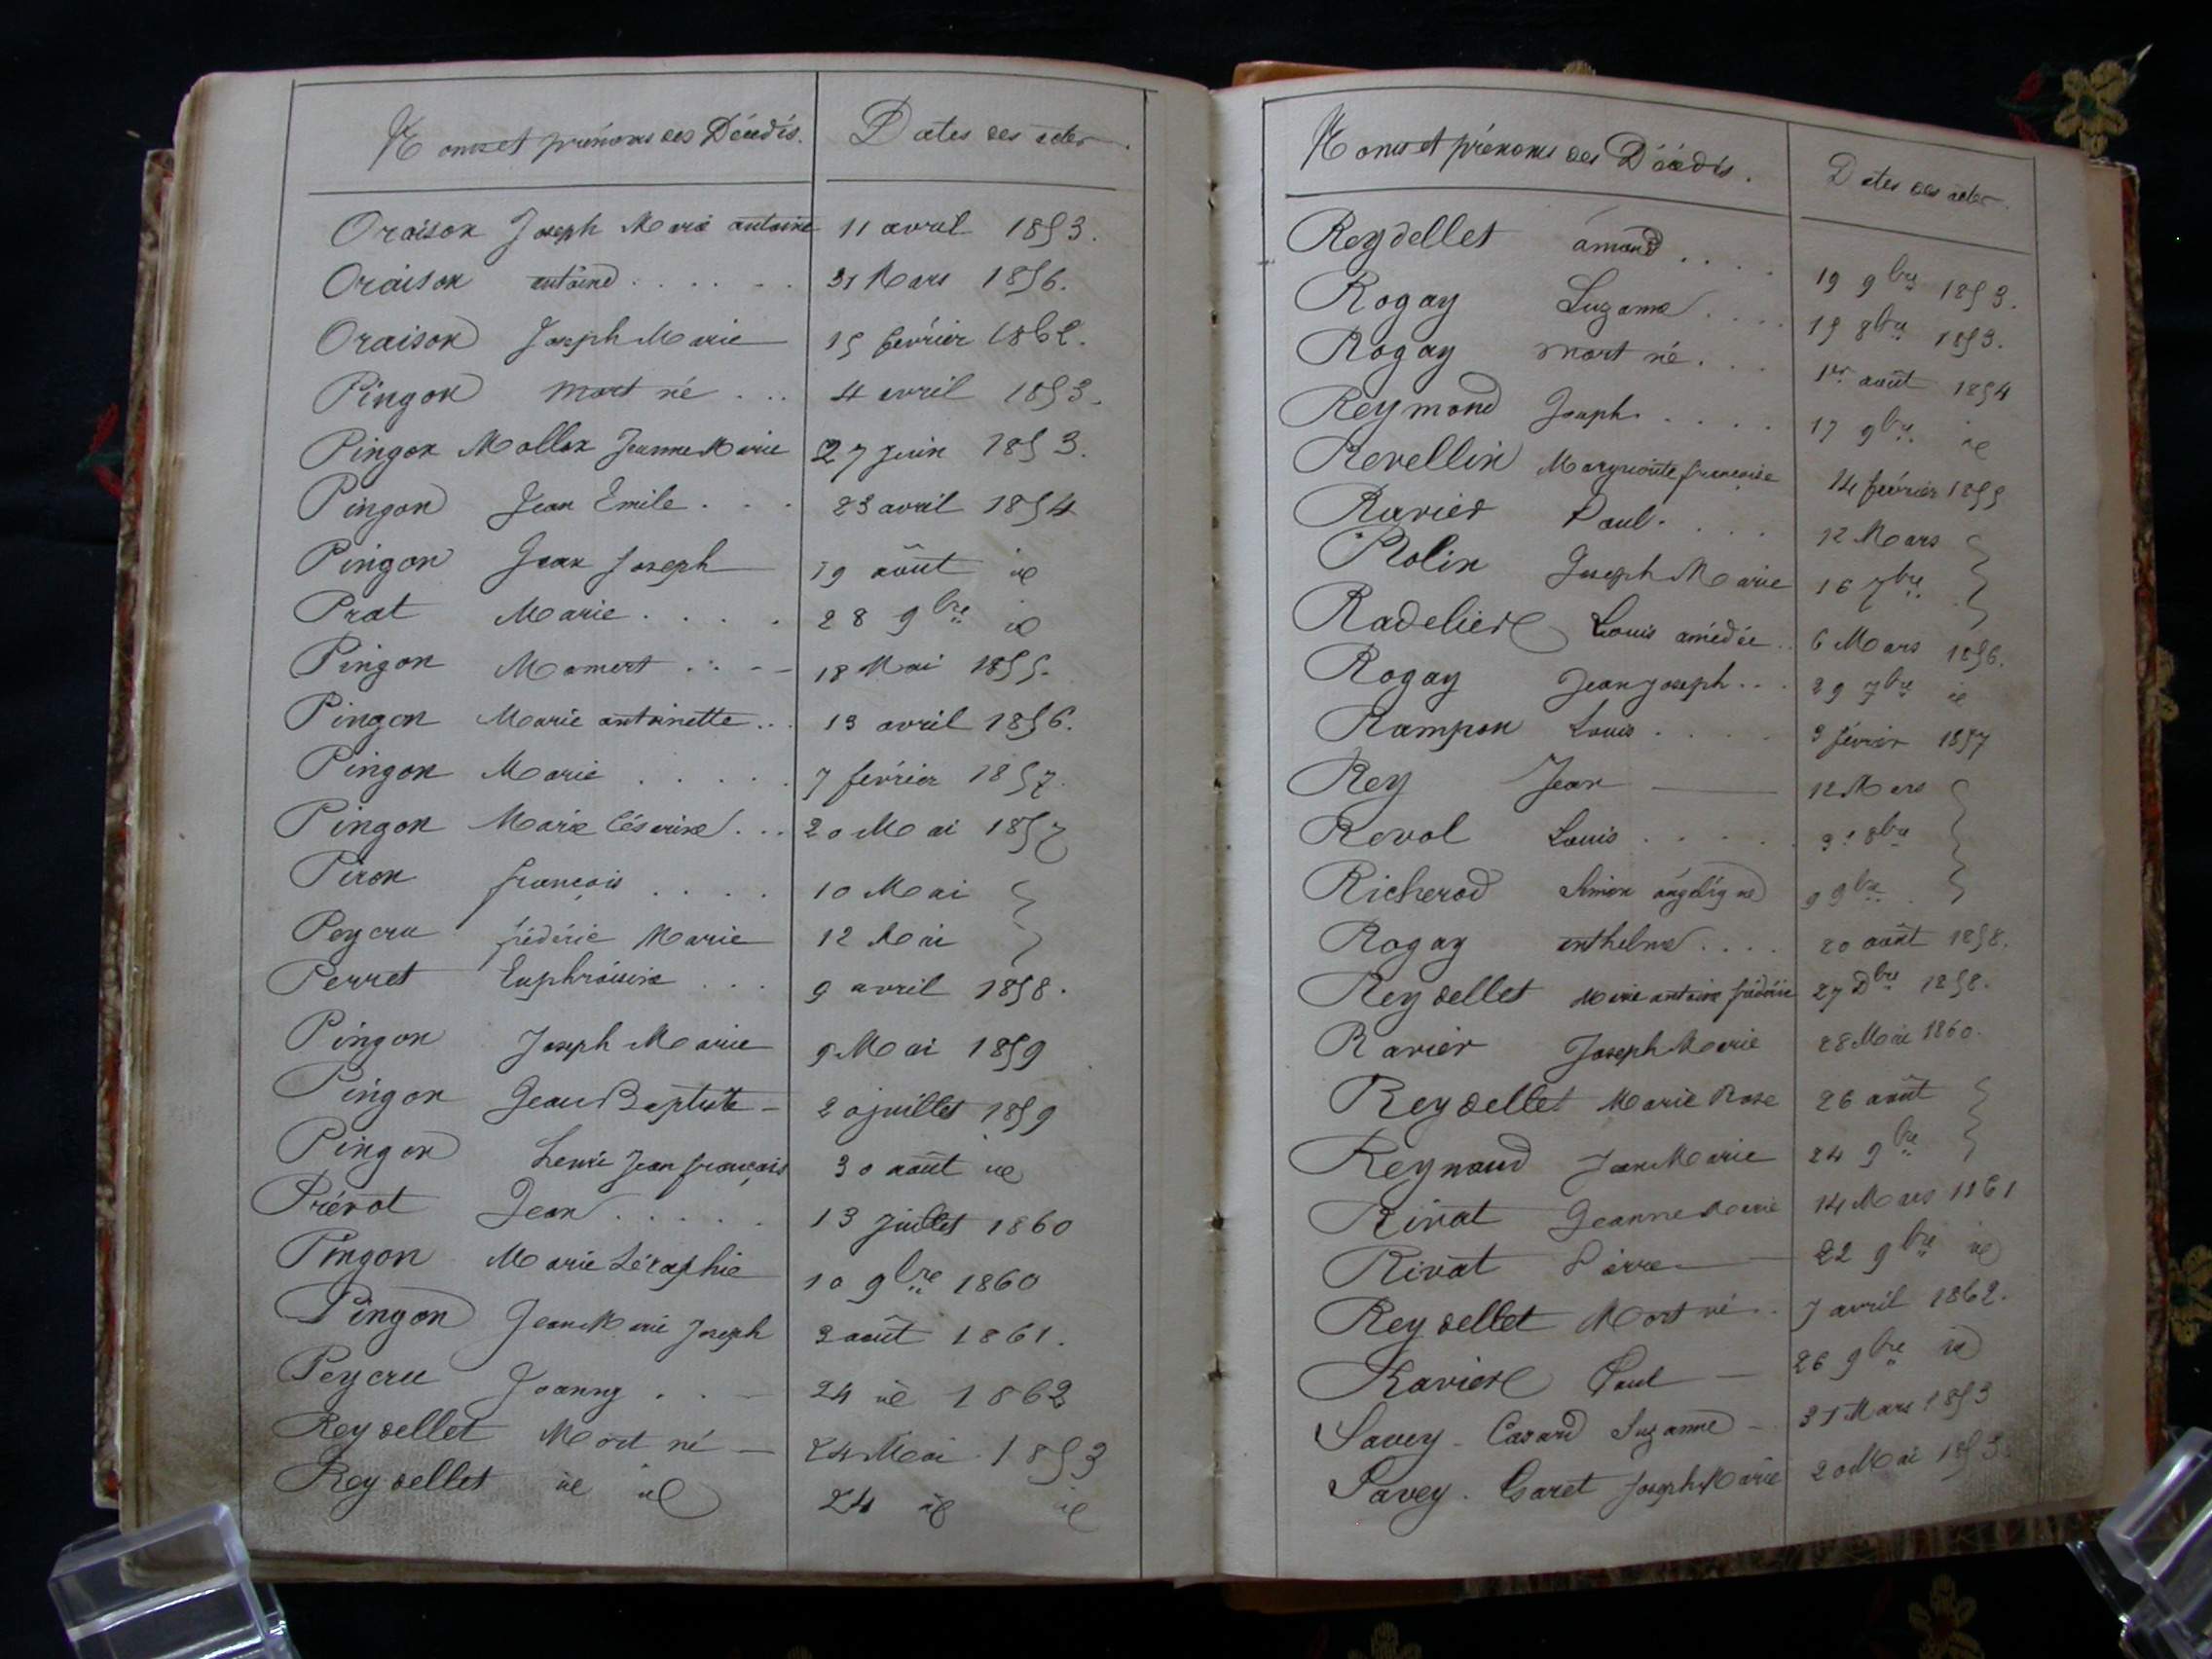 Noms et prénoms des Décédés. Dates des actes.
Oraison Joseph Marie antoine 11 avril 1853.
Oraison antoine . . . . . 31 Mars 1856.
Oraison Joseph Marie 15 février 1862.
Pingon mort né . . . 4 avril 1853.
Pingon Mollon Jeanne Marie 27 juin 1853.
Pingon Jean Emile . . . 23 avril 1854
Pingon Jean Joseph 19 août id
Prat Marie . . . . . 28 9bre id
Pingon Mamert . . . 18 Mai 1855.
Pingon Marie antoinette . . 13 avril 1856.
Pingon Marie . . . . . 7 février 1857.
Pingon Marie Césarine . . . 20 Mai 1857
Piron françois . . . . 10 Mai }
Peycru frédéric Marie 12 Mai }
Perret Euphroisine . . . 9 avril 1858.
Pingon Joseph Marie 9 Mai 1859
Pingon Jean Baptiste - 20 juillet 1859
Pingon henri Jean françois 30 août id
Prévot Jean . . . . . 13 Juillet 1860
Pingon Marie Séraphie 10 9bre 1860
Pingon Jean Marie Joseph 3 août 1861.
Peycru Joanny . . - 24 id 1862
Reydellet Mort né - 24 Mai 1853
Reydellet id id 24 id id
Noms et prénoms des Décédés. Dates des actes.
Reydellet amand . . . . 19 9bre 1853.
Rogay Suzanne . . . . 15 8bre 1853.
Rogay mort né . . . 1er août 1854
Reymond Joseph . . . . 17 9bre id
Revellin Marguerite françoise 14 février 1855
Ravier Paul . . . . 12 Mars }
Rolin Joseph Marie 16 7bre }
Radeliere Louis amédée . . 6 Mars 1856.
Rogay Jean Joseph . . . 29 7bre id
Rampon Louis . . . . 3 février 1857
Rey Jean 12 Mars }
Revol Louis . . . . . 31 8bre }
Richerod Simon 9 9bre }
Rogay anthelme . . . . 20 août 1858.
Reydellet Marie antoine frédéric 27 Dbre 1858.
Ravier Joseph Marie 28 Mai 1860.
Reydellet Marie Rose 26 août }
Reynaud Jean Marie 24 9bre }
Rivat Jeanne Marie 14 Mars 1861
Rivat Pierre 22 9bre id
Reydellet Mort né . . 7 avril 1862.
Raviere Paul - 26 9bre id
Savey - Casard Suzanne - 31 Mars 1853
Savey - Joseph Marie 20 Mai 1853.